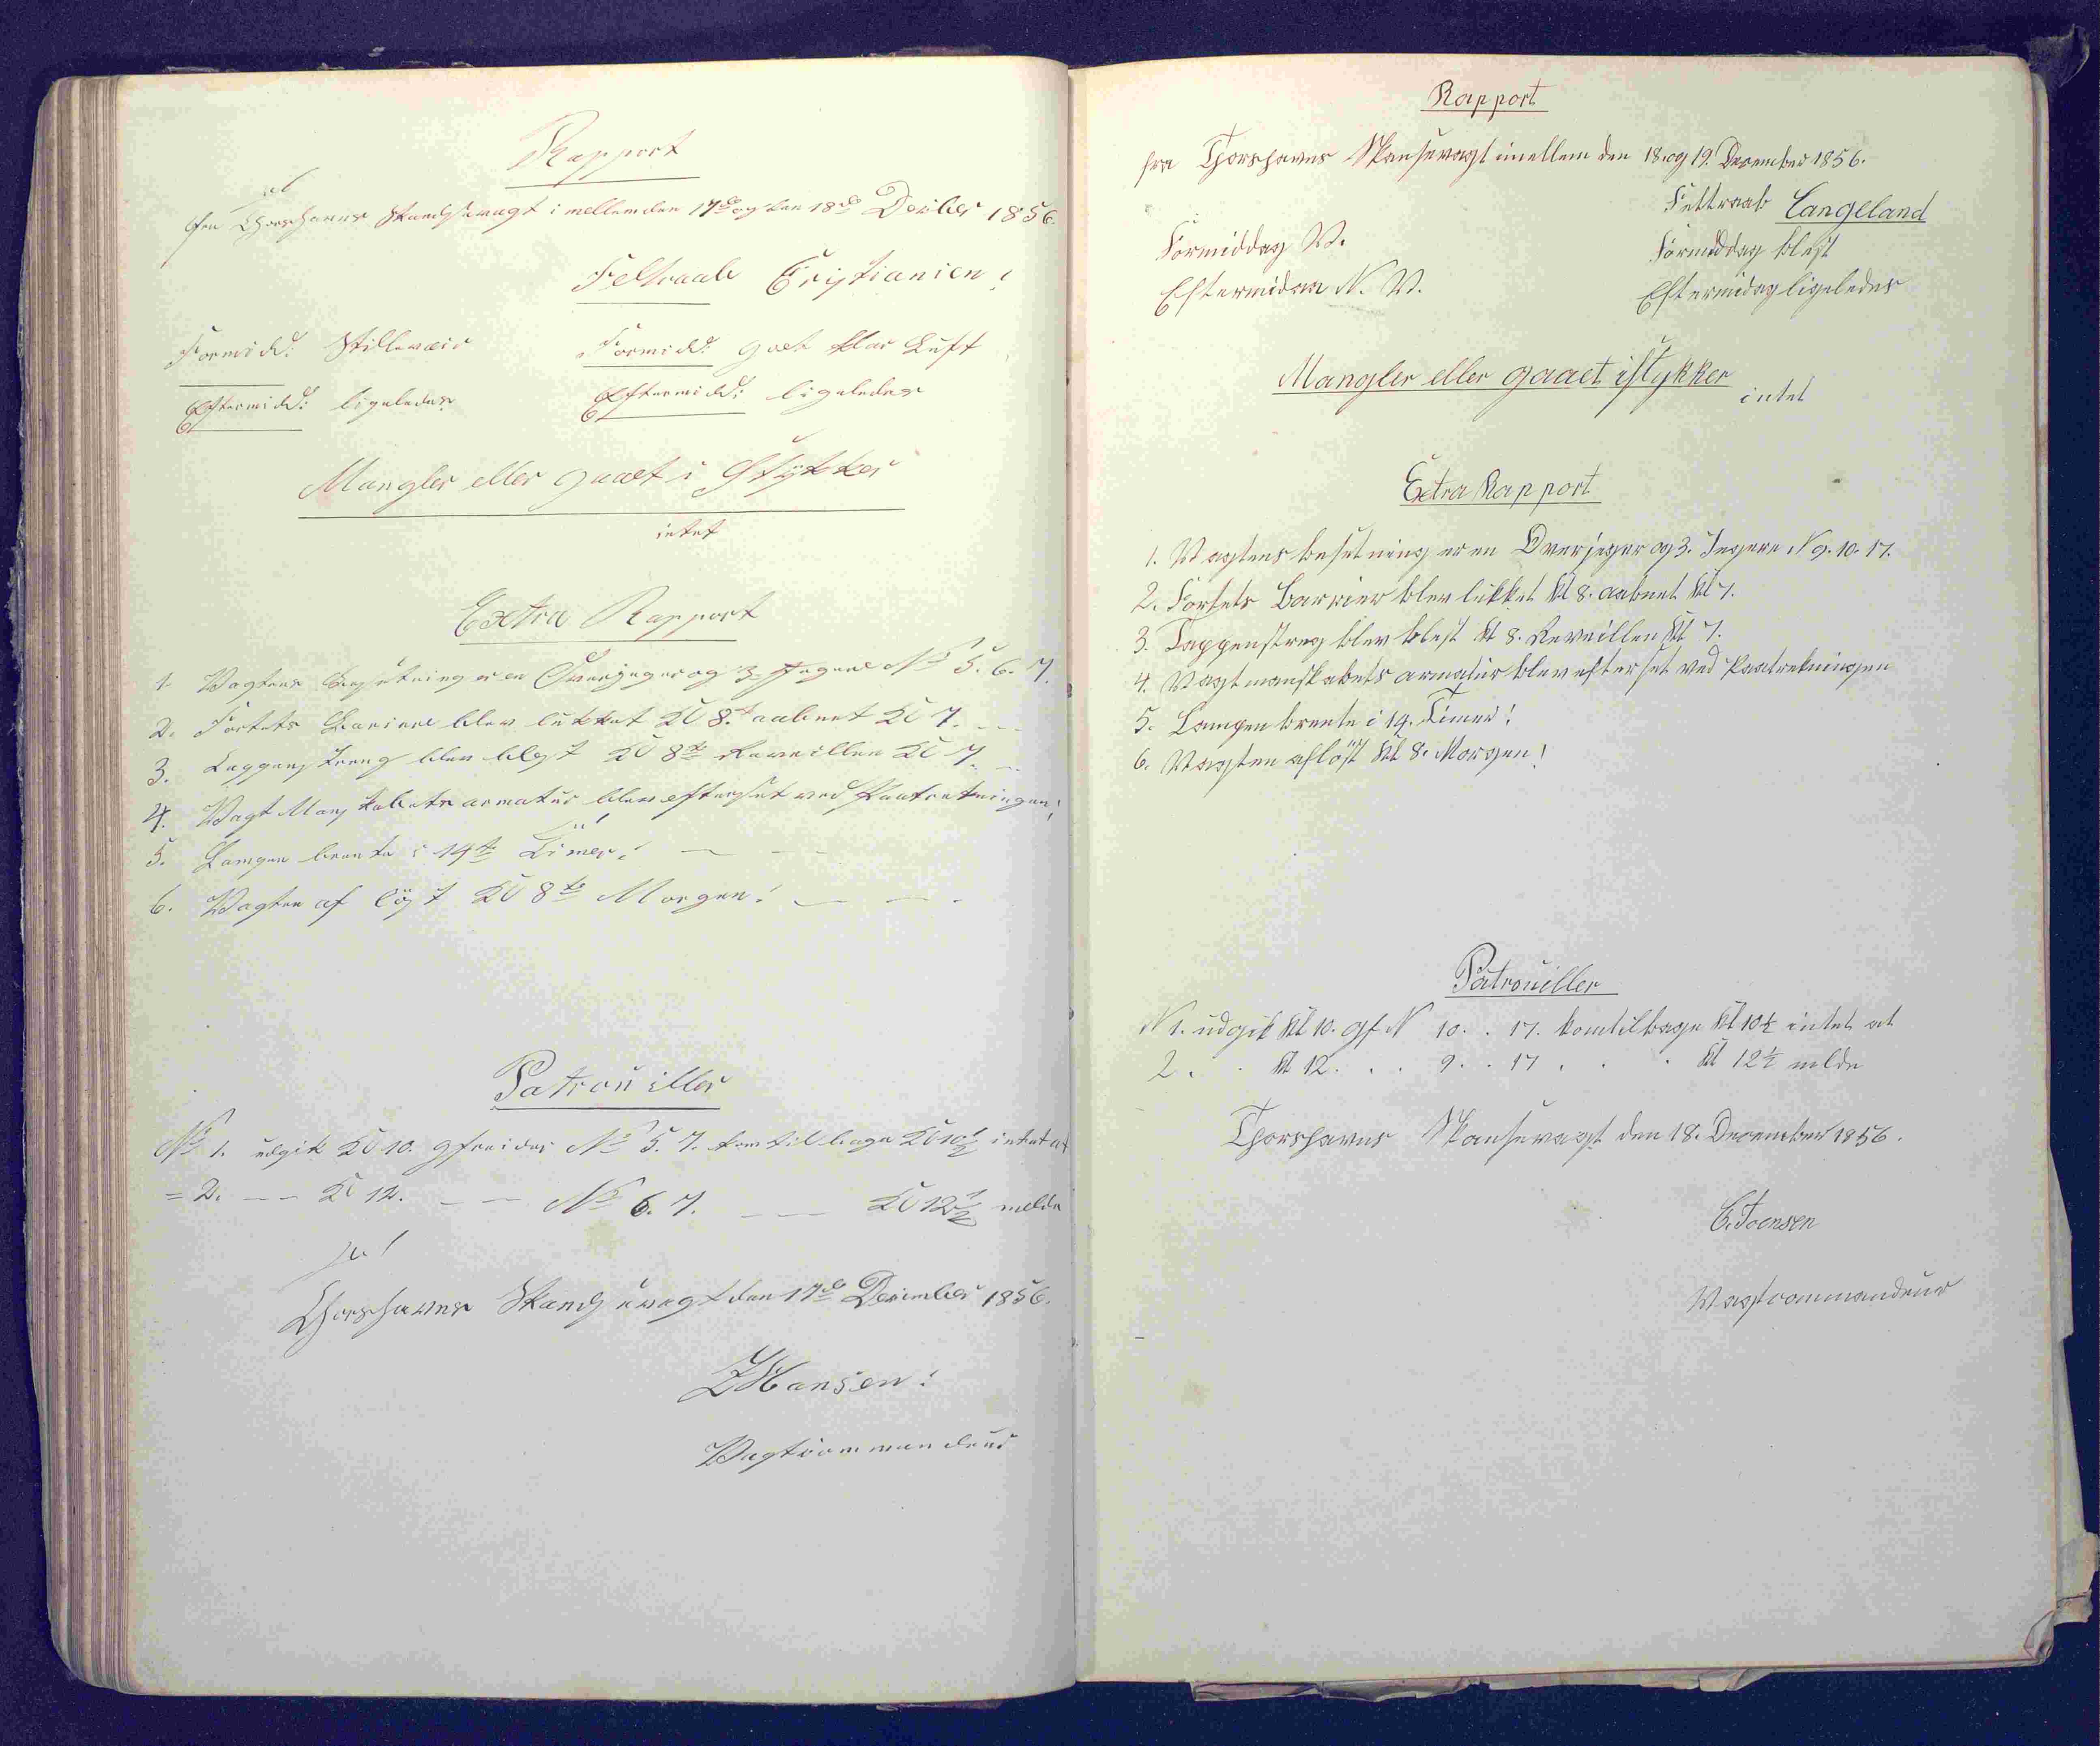 Rapport
fra Thorshavns Skandsevagt imellem den 17de og den 18de Decbr 1856.
Feltraab Cristianien!
Formidd: Stillevæir
Formidd: godt klar Luft
Eftermidd: ligeledes
Eftermidd: ligeledes
Mangler eller gaaet i Stykker
intet
Extra Rapport
1. Vagtens Besetning er en Overjeger og 3 Jegere No 5. 6. 7.
2. Fortets Bariere blev lukket Kl 8. aabnet Kl 7.
3. Tappenstreng blev blest Kl 8te Reveillen Kl 7.
4. Vagt Manskabets armatur blev efterset ved Paatrekningen!
5. Lampen brente i 14te Timer!
6. Vagten aflöst Kl 8te Morgen!
Patrouiller
No 1. udgik Kl 10. gfreider No 5. 7. kom tilbage Kl 10½ intet at
= 2. — — Kl 12. — — No 6. 7. — — Kl 12½ melde
Thorshavns Skandsevagt den 17de December 1856.
Z Hansen!
Vagtcommandeur
Rapport
fra Thorshavns Skansevagt imellem den 18. og 19. December 1856.
Feltraab Langeland
Formiddag V.
Formiddag blest
Eftermidaa N. V.
Eftermidag ligeledes
Mangler eller gaaet istykker
intet
Extra Rapport
1. Vagtens besetning er en Overjeger og 3. Jegere N 9. 10. 17.
2. Fortets Barrier blev lukket Kl 8. aabnet Kl 7.
3. Tappenstreg blev blest Kl 8. Reveillen Kl 7.
4. Vagtmanskabets armatur blev efterset ved Paatrekningen
5. Lampen brente i 14. Timer!
6. Vagten aflöst Kl 8. Morgen!
Patrouiller
N 1. udgik Kl 10. gf. N 10. . 17. kom tilbage Kl 10½ intet at
2. . Kl 12. . . 9. . 17 . . . Kl 12½ melde
Thorshavns Skansevagt den 18. December 1856.
C. Joensen
Vagtcommandeur